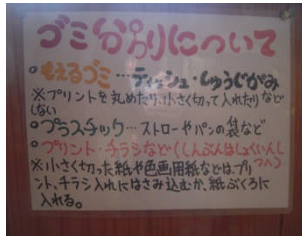 ゴミ分別について
○もえるゴミ…ティッシュ・しゅうじがみ
※プリントを丸めたり、小さく切って入れたりなど
しない
○プラスチック…ストローやパンの袋など
○プリント・チラシなど(しんぶんはしょくいんし
つへ)
※小さく切った紙や色画用紙などは、プリ
ント、チラシ入れにはさみ込むか、紙ぶくろに
入れる。